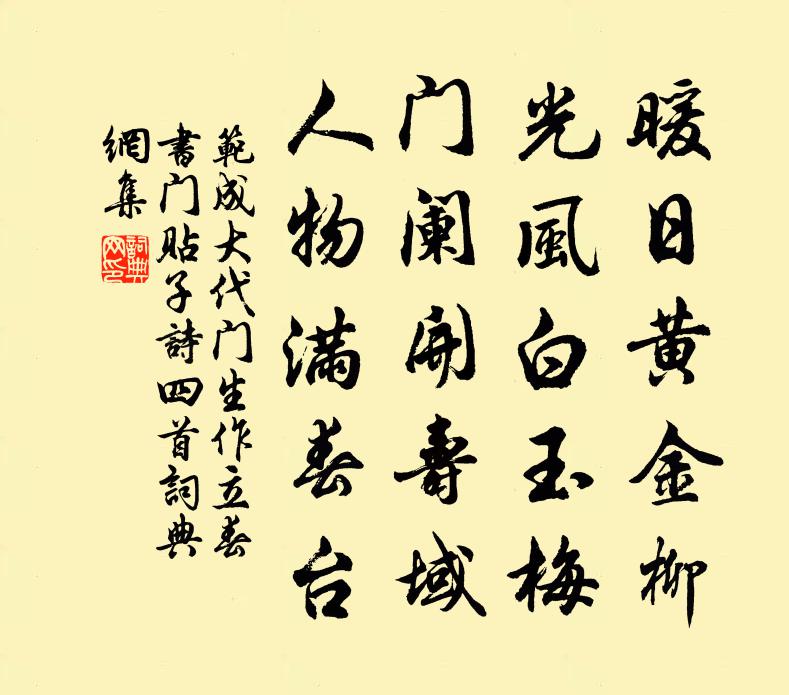 暖日黄金柳
光風白玉梅
门阑開壽域
人物满春台
範成大代门生作立春
書门貼子詩四首詞典
網集
詞典网印